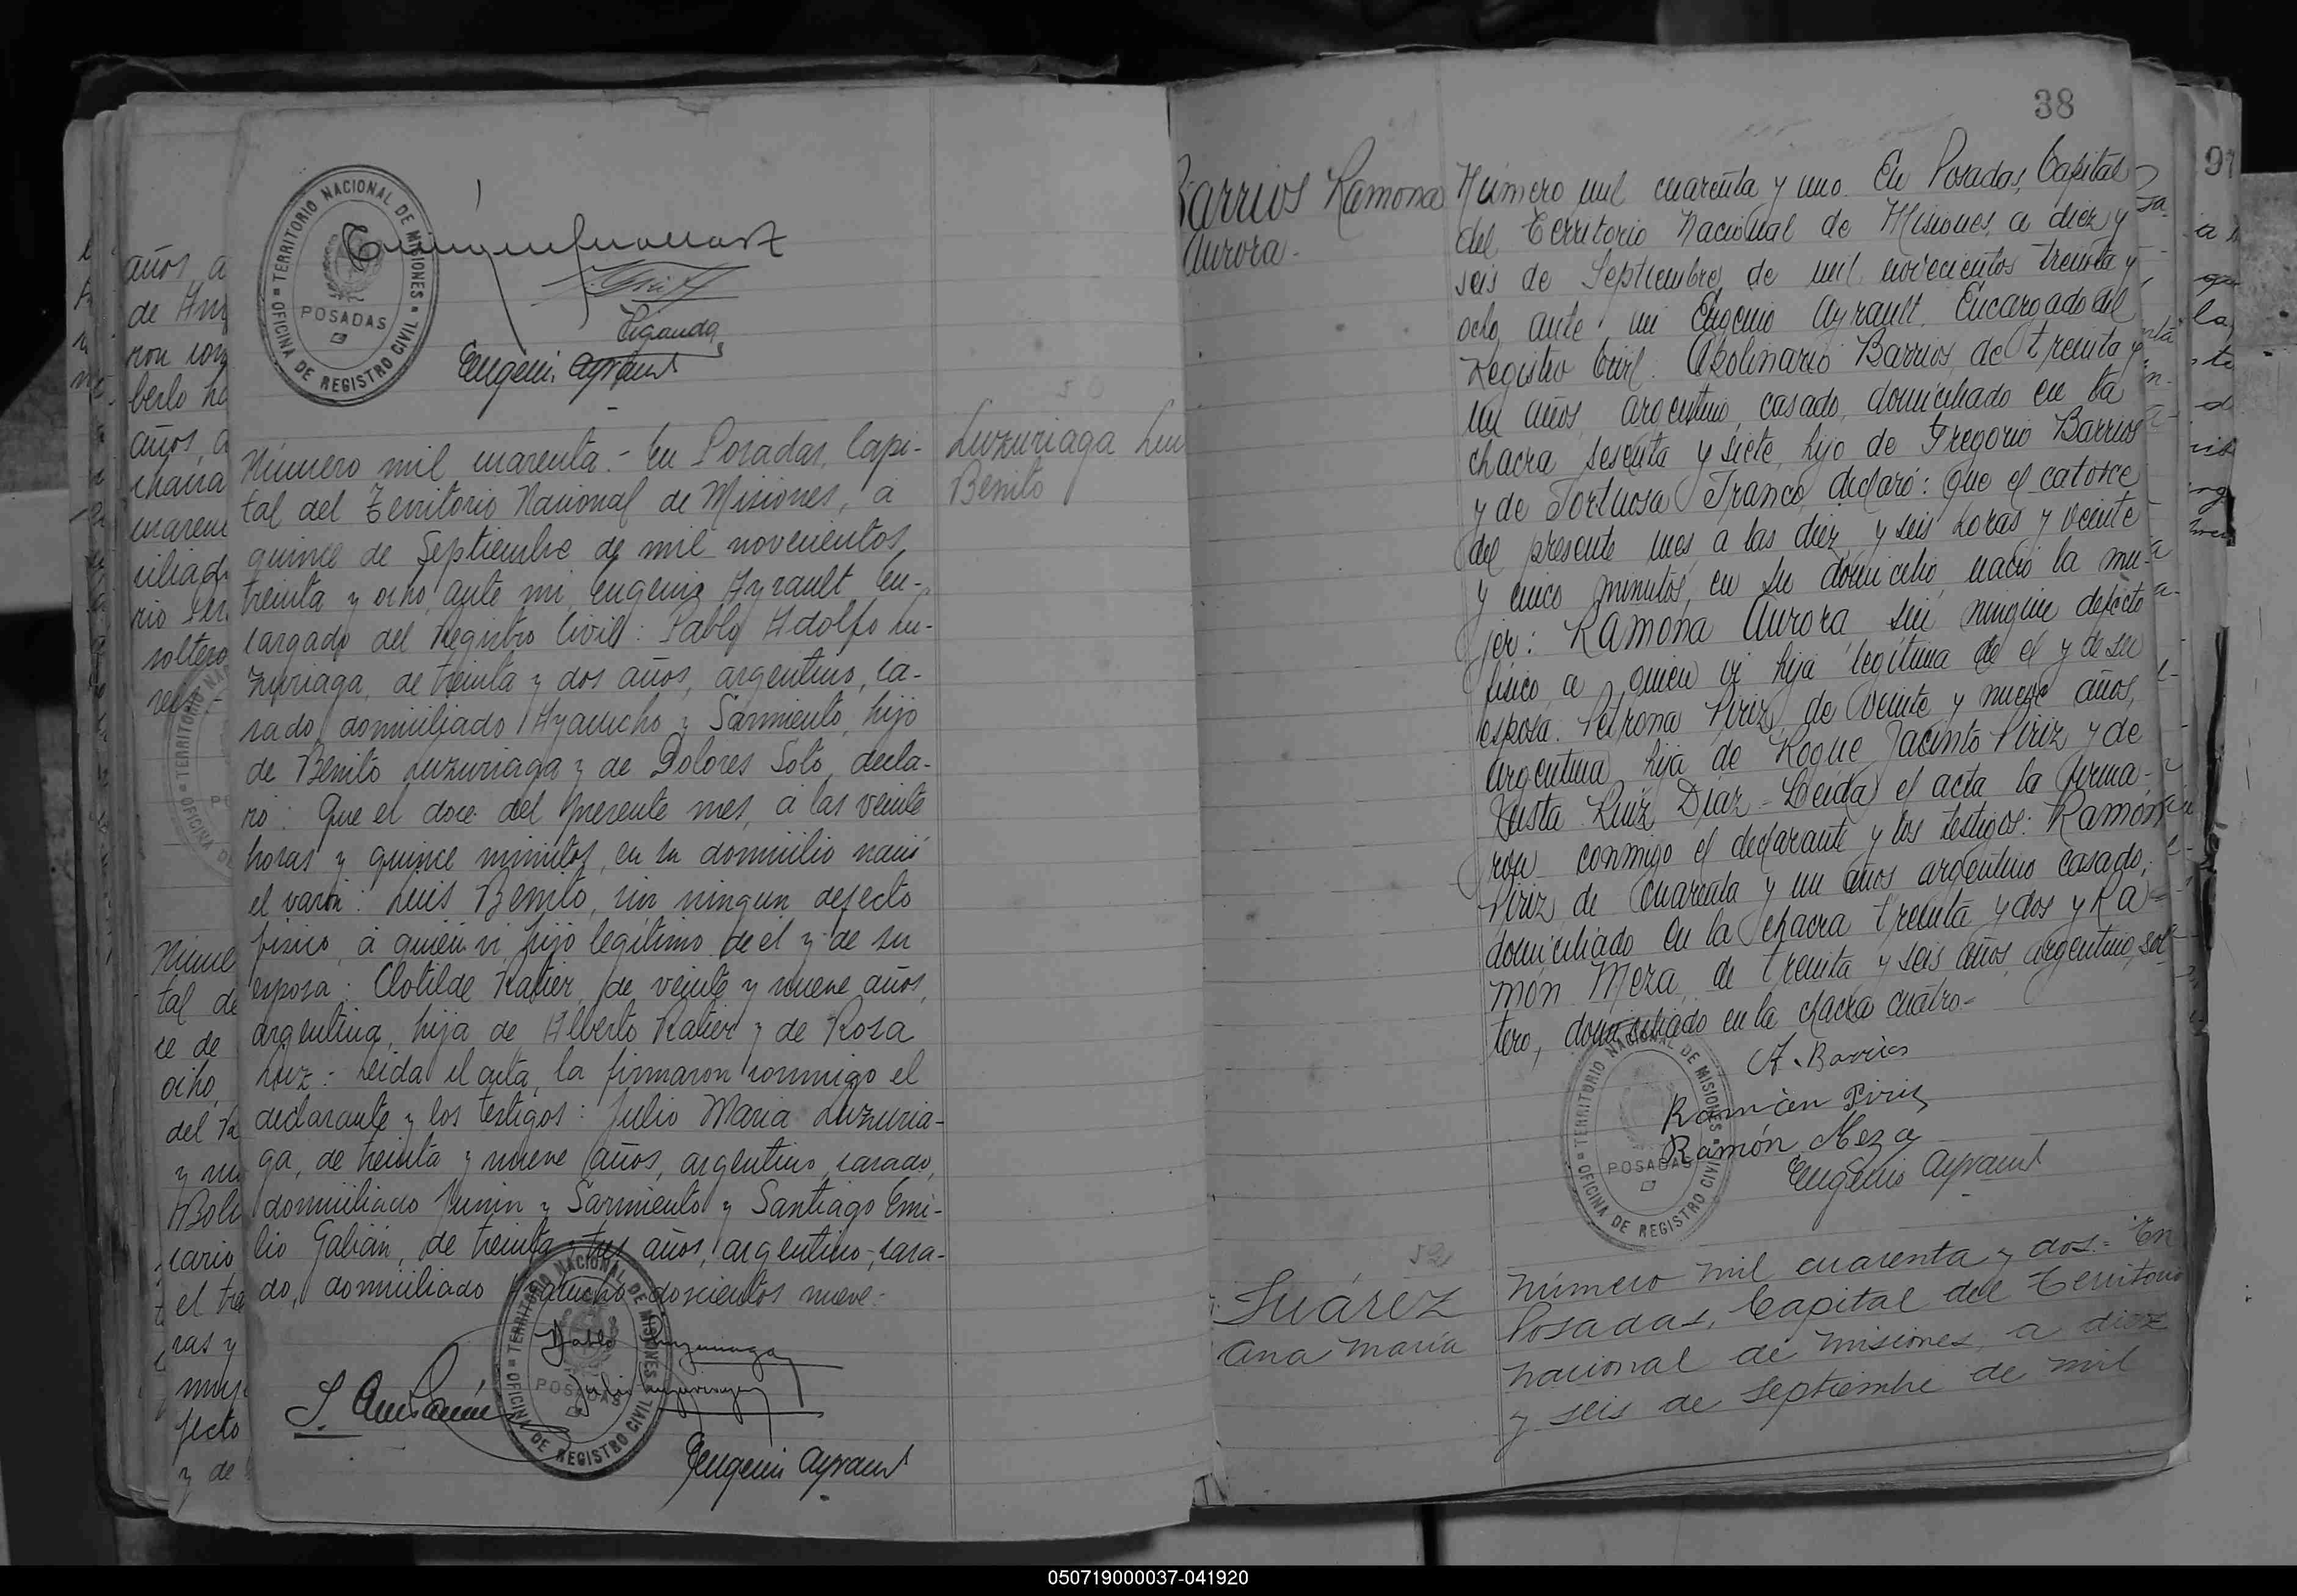 TERRITORIO NACIONAL DE MISIONES
POSADAS
OFICINA DE REGISTRO CIVIL
Eugenio Ayrault
Número mil cuarenta.- En Posadas, Capi-
tal del Territorio Nacional de Misiones, a
quince de Septiembre de mil novecientos
treinta y ocho, ante mi, Eugenio Ayrault, En-
cargado del Registro Civil: Pablo Adolfo Lu-
zuriaga, de treinta y dos años, argentino, ca-
sado, domiciliado Ayacucho y Sarmiento, hijo
de Benito Luzuriaga y de Dolores Soto, decla-
ró: Que el doce del presente mes, a las veinte
horas y quince minutos, en su domicilio nació
el varón: Luis Benito, sin ningun defecto
fisico, a quien vi, hijo legítimo de él y de su
esposa: Clotilde Ratier, de veinte y nueve años,
argentina, hija de Alberto Ratier y de Rosa
Leida el acta, la firmaron conmigo el
declarante y los testigos: Julio Maria Luzuria-
ga, de treinta y nueve años, argentino, casado,
domiciliado Junin y Sarmiento y Santiago Emi-
lio Galián, de treinta y tres años, argentino, casa-
do, domiciliado Ayacucho doscientos nueve.-
TERRITORIO NACIONAL DE MISIONES
POSADAS
OFICINA DE REGISTRO CIVIL
Pablo Luzuriaga
Julio Luzuriaga
Eugenio Ayrault
Luzuriaga Lui
Benito
38
Barrios Ramona
Aurora.
Número mil cuarenta y uno. En Posadas, Capital
del Territorio Nacional de Misiones, a diez y
seis de Septiembre, de mil novecientos treinta y
ocho, ante mi Eugenio Ayrault, Encargado del
Registro Civil. Apolinario Barrios, de treinta y
un años, argentino, casado, domiciliado en la
chacra sesenta y siete, hijo de Gregorio Barrios
y de Tortuosa Franco, declaró: Que el catorce
del presente mes, a las diez y seis horas y veinte
y cinco minutos, en su domicilio, nació la mu-
jer: Ramona Aurora, sin ningun defecto
fisico, a quien vi hija legítima de el y de su
esposa. Petrona Piriz, de veinte y nueve años,
argentina, hija de Roque Jacinto Piriz y de
Justa Ruiz Diaz - Leida el acta la firma-
ron conmigo el declarante y los testigos: Ramón
Piriz de cuarenta y un años argentino casado,
domiciliado en la chacra treinta y dos y Ra-
món Meza, de treinta y seis años, argentino, sol-
tero, domiciliado en la chacra cuatro-
TERRITORIO NACIONAL DE MISIONES
POSADAS
OFICINA DE REGISTRO CIVIL
A. Barrios
Ramón Piriz
Ramón Meza
Eugenio Ayrault
52
Suárez
Ana María
Número mil cuarenta y dos.= En
Posadas, Capital del Territorio
Nacional de Misiones, a diez
y seis de Septiembre de mil
050719000037-041920